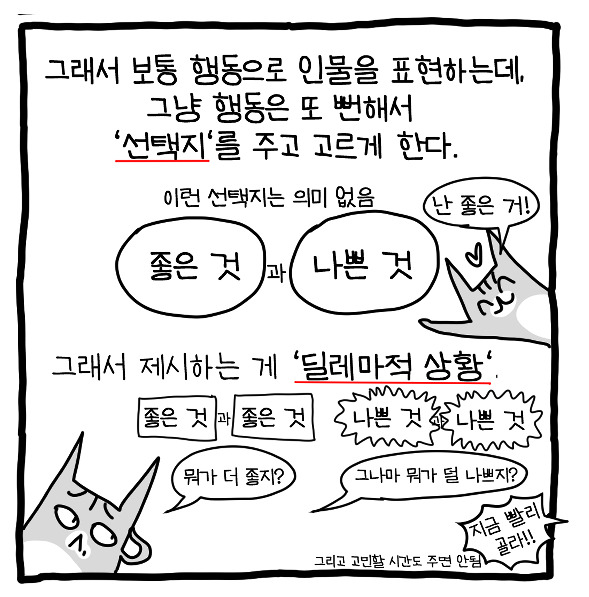 그래서 보통 행동으로 인물을 표현하는데,
그냥 행동은 또 뻔해서
'선택지'를 주고 고르게 한다.
이런 선택지는 의미 없음
난 좋은 거!
좋은 것 과 나쁜 것
그래서 제시하는 게 '딜레마적 상황'.
좋은 것 과 좋은 것
나쁜 것 과 나쁜 것
뭐가 더 좋지?
그나마 뭐가 덜 나쁘지?
지금 빨리
골라!!
그리고 고민할 시간도 주면 안됨